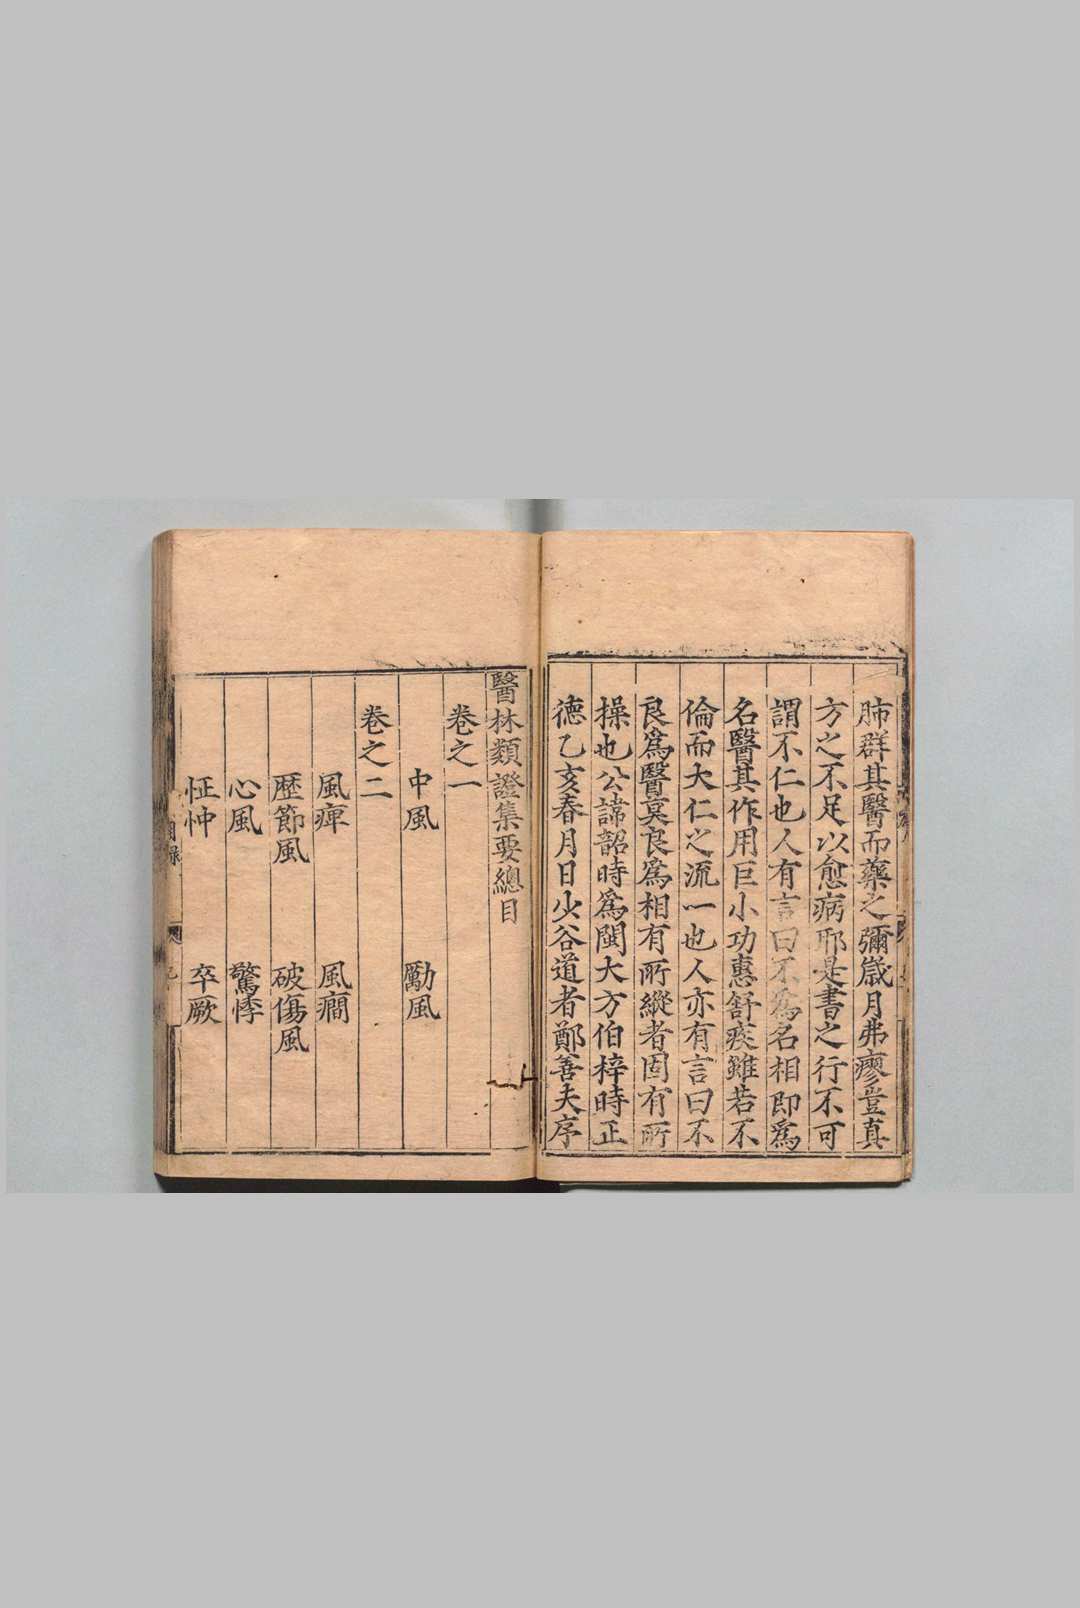 肺群其醫而藥之彌歲月弗瘳豈真
方之不足以愈病耶是書之行不可
謂不仁也人有言曰不爲名相即爲
名醫其作用巨小功惠舒疾雖若不
倫而大仁之流一也人亦有言曰不
良爲醫寔良爲相有所縱者固有所
操也公諱韶時爲閩大方伯梓時正
德乙亥春月日少谷道者鄭善夫序
醫林類證集要總目
卷之一
中風 勵風
卷之二
風痺 風癎
歷節風 破傷風
心風 驚悸
怔忡 卒厥
目錄